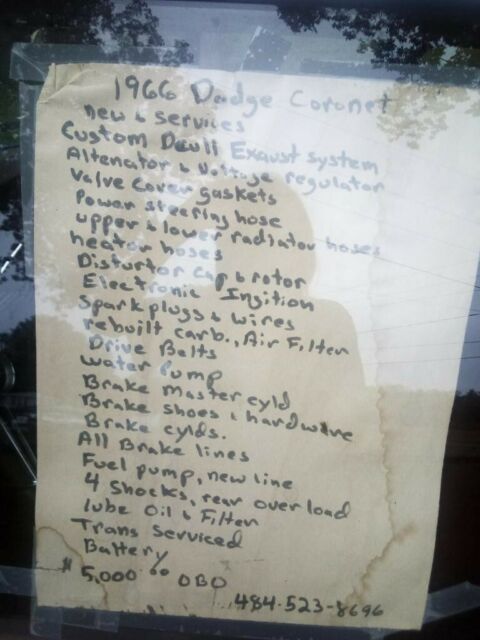 1966 Dodge Coronet
new & services
Custom Duull Exaust system
Altenator & Voltage regulator
Valve Cover gaskets
Power steering hose
upper & lower radiator hoses
heator hoses
Disturtor Cap & rotor
Electronic Ingition
Spark plugs & wires
rebuilt carb., Air Filter
Drive Belts
water Pump
Brake master cyld
Brake shoes & hardware
Brake cylds.
All Brake lines
Fuel pump, new line
4 Shocks, rear over load
lube Oil & Filter
Trans Serviced
Battery
$5,000.00 OBO
484-523-8696